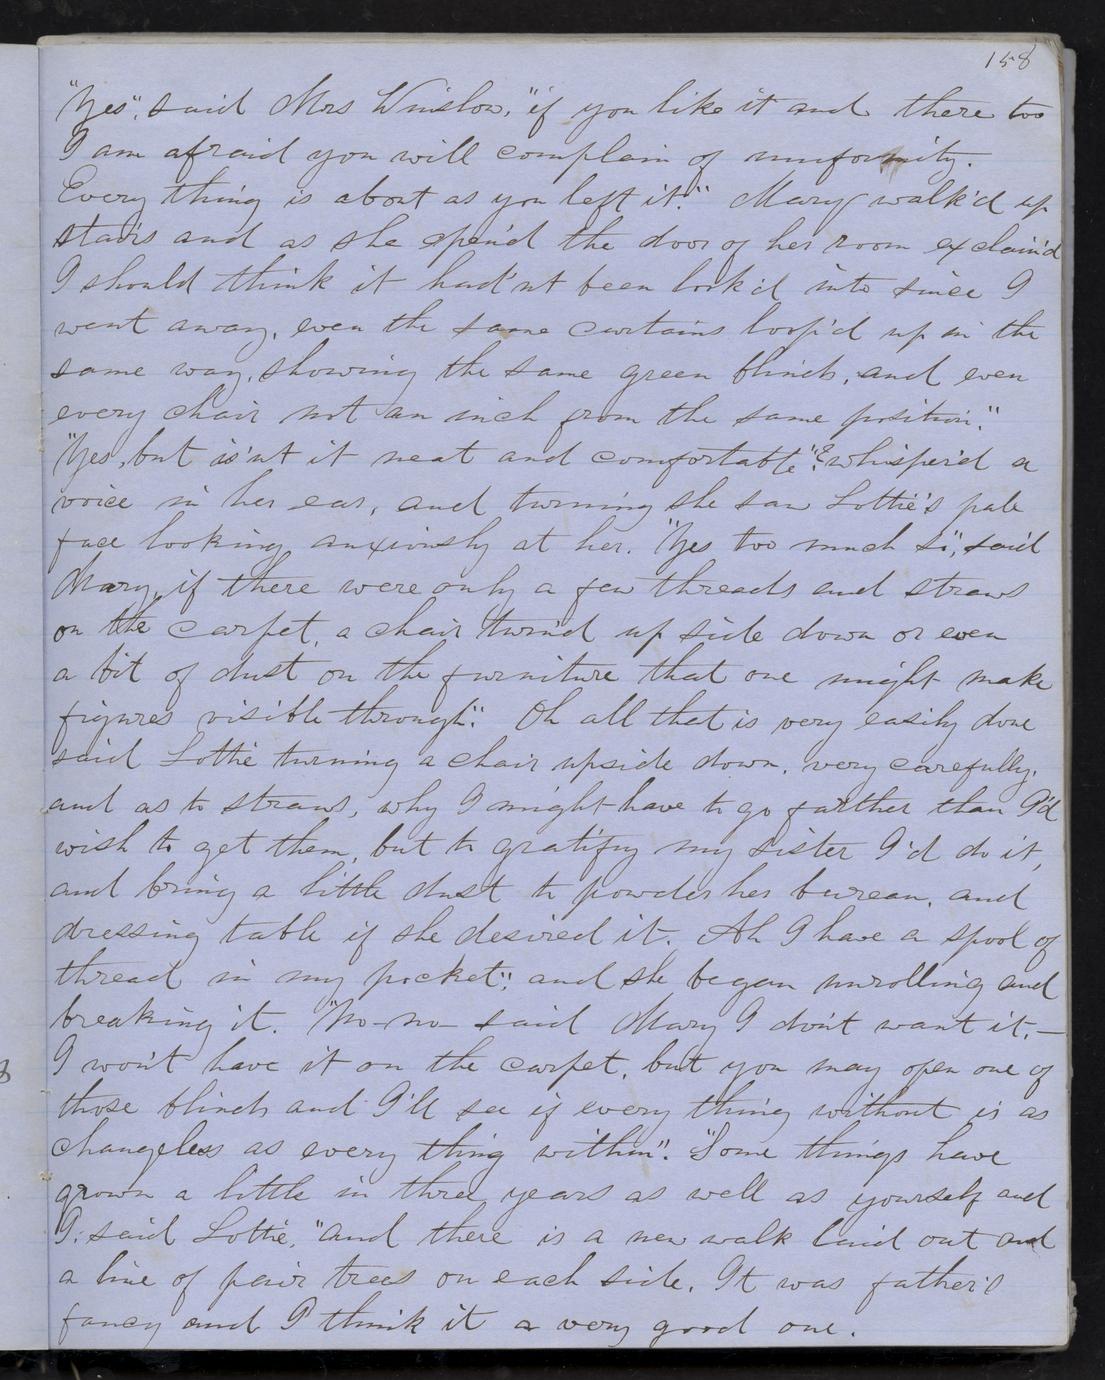 158
"Yes", said Mrs Winslow, "if you like it and there too
I am afraid you will complain of uniformity.
Every thing is about as you left it." Mary walk'd up
stairs and as she open'd the door of her room exclaim'd
I should think it had'nt been look'd into since I
went away, even the same curtains loop'd up in the
same way, showing the same green blinds, and even
every chair not an inch from the same position."
"Yes, but is'nt it neat and comfortable"? whisper'd a
voice in her ear, and turning she saw Lottie's pale
face looking anxiously at her. "Yes too much so", said
Mary, if there were only a few threads and straws
on the carpet, a chair turn'd up side down or even
a bit of dust on the furniture that one might make
figures visible through". Oh all that is very easily done
said Lottie turning a chair upside down, very carefully.
and as to straws, why I might have to go farther than I'd
wish to get them, but to gratify my sister I'd do it,
and bring a little dust to powder her bureau, and
dressing table if she desired it. Ah I have a spool of
thread in my pocket", and she began unrolling and
breaking it. "No-no- said Mary I don't want it,—
I won't have it on the carpet, but you may open one of
those blinds and I'll see if every thing without is as
changeless as every thing within". "Some things have
grown a little in three years as well as yourself and
I, said Lottie, "and there is a new walk laid out and
a line of pair trees on each side. It was father's
fancy and I think it a very good one.